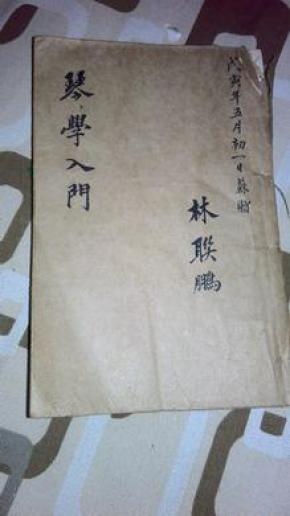 戊寅年五月初一日蘇贈
林聯鵬
琴學入門